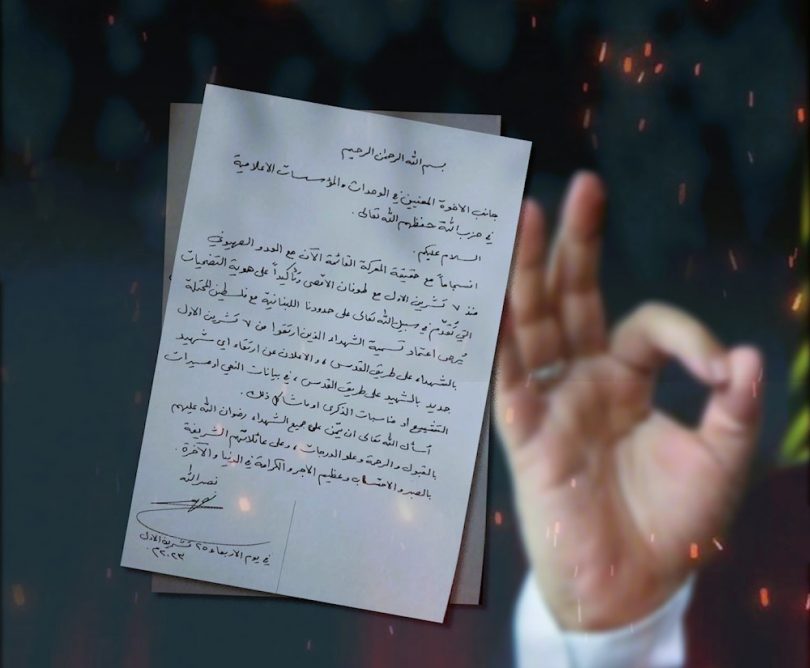 بسم الله الرحمن الرحيم
جانب الاخوة المعنيين في الوحدات والمؤسسات الاعلامية
في حزب الله حفظهم الله تعالى .
السلام عليكم .
انسجاماً مع حقيقة المعركة القائمة الآن مع العدو الصهيوني
منذ ٧ تشرين الاول مع طوفان الاقصى وتأكيداً على هوية التضحيات
التي تُقدّم في سبيل الله تعالى على حدودنا اللبنانية مع فلسطين المحتلة
يُرجى اعتماد تسمية الشهداء الذين ارتقوا من ٧ تشرين الاول
بالشهداء على طريق القدس ، والاعلان عن ارتقاء اي شهيد
جديد بالشهيد على طريق القدس ، في بيانات النعي او مسيرات
التشييع او مناسبات الذكرى او ما شاكل ذلك .
أسأل الله تعالى ان يمنّ على جميع الشهداء رضوان الله عليهم
بالقبول والرحمة وعلو الدرجات ، وعلى عائلاتهم الشريفة
بالصبر والاحتساب وعظيم الاجر والكرامة في الدنيا والآخرة .
نصر الله
في يوم الاربعاء ٢٥ تشرين الاول
٢٠٢٣ م